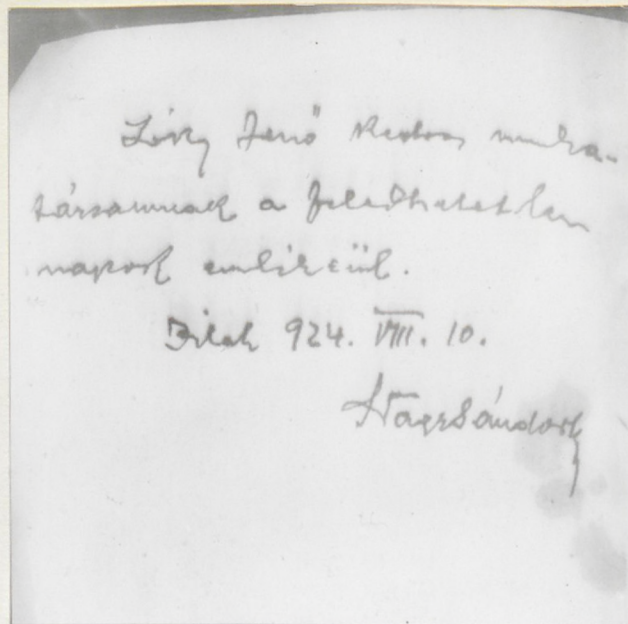 Jenő kedves munka-
társamnak a feledhetetlen
napok emlékéül.
924. VIII. 10.
Nagy Sándor